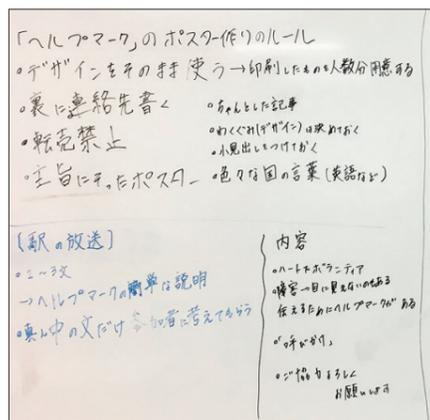 「ヘルプマーク」のポスター作りのルール
•デザインをそのまま使う→印刷したものを人数分用意する
•裏に連絡先書く
•転売禁止
•主旨にそったポスター
•ちゃんとした記事
•わくぐみ(デザイン)は決めておく
•小見出しもつけておく
•色々な国の言葉(英語など)
[駅の放送]
•2〜3文
→ヘルプマークの簡単な説明
•真ん中の文だけ参加者に考えてもらう
内容
•ハートボランティア
•障害→目に見えないのもある
伝えるためにヘルプマークがある
•「呼びかけ」
•ご協力よろしく
お願いします